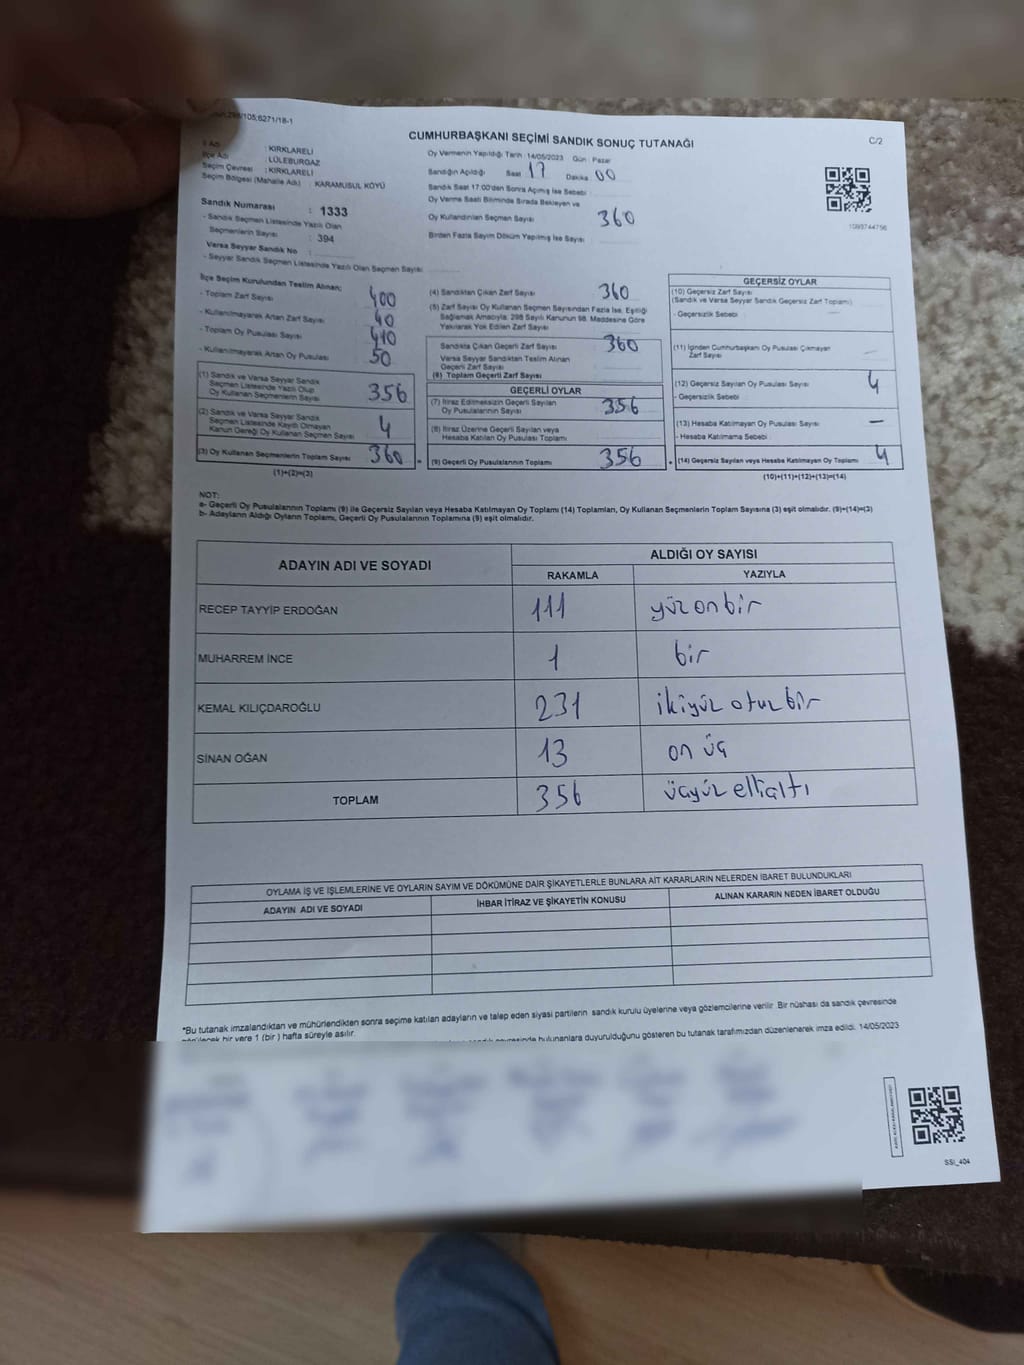 CUMHURBAŞKANI SEÇİMİ SANDIK SONUÇ TUTANAĞI
C/2
İl Adı : KIRKLARELİ
İlçe Adı : LÜLEBURGAZ
Seçim Çevresi : KIRKLARELİ
Seçim Bölgesi (Mahalle Adı) : KARAMUSUL KÖYÜ
Sandık Numarası : 1333
- Sandık Seçmen Listesinde Yazılı Olan
Seçmenlerin Sayısı : 394
Varsa Seyyar Sandık No :
- Seyyar Sandık Seçmen Listesinde Yazılı Olan Seçmen Sayısı
Oy Vermenin Yapıldığı Tarih : 14/05/2023 Gün : Pazar
Sandığın Açıldığı Saat 17 Dakika 00
Sandık Saat 17.00'den Sonra Açılmış İse Sebebi :
Oy Verme Saati Bitiminde Sırada Bekleyen ve
Oy Kullandırılan Seçmen Sayısı 360
Birden Fazla Sayım Döküm Yapılmış İse Sayısı :
1093744756
İlçe Seçim Kurulundan Teslim Alınan;
- Toplam Zarf Sayısı 400
- Kullanılmayarak Artan Zarf Sayısı 40
- Toplam Oy Pusulası Sayısı 410
- Kullanılmayarak Artan Oy Pusulası 50
(1) Sandık ve Varsa Seyyar Sandık
Seçmen Listesinde Yazılı Olup
Oy Kullanan Seçmenlerin Sayısı 356
(2) Sandık ve Varsa Seyyar Sandık
Seçmen Listesinde Kayıtlı Olmayan
Kanun Gereği Oy Kullanan Seçmen Sayısı 4
(3) Oy Kullanan Seçmenlerin Toplam Sayısı 360
(1)+(2)=(3)
(4) Sandıktan Çıkan Zarf Sayısı 360
(5) Zarf Sayısı Oy Kullanan Seçmen Sayısından Fazla İse, Eşitliği
Sağlamak Amacıyla; 298 Sayılı Kanunun 98. Maddesine Göre
Yakılarak Yok Edilen Zarf Sayısı
Sandıkta Çıkan Geçerli Zarf Sayısı 360
Varsa Seyyar Sandıktan Teslim Alınan
Geçerli Zarf Sayısı
(6) Toplam Geçerli Zarf Sayısı
GEÇERLİ OYLAR
(7) İtiraz Edilmeksizin Geçerli Sayılan
Oy Pusulalarının Sayısı 356
(8) İtiraz Üzerine Geçerli Sayılan veya
Hesaba Katılan Oy Pusulası Toplamı
(9) Geçerli Oy Pusulalarının Toplamı 356
GEÇERSİZ OYLAR
(10) Geçersiz Zarf Sayısı
(Sandık ve Varsa Seyyar Sandık Geçersiz Zarf Toplamı)
- Geçersizlik Sebebi
(11) İçinden Cumhurbaşkanı Oy Pusulası Çıkmayan
Zarf Sayısı —
(12) Geçersiz Sayılan Oy Pusulası Sayısı 4
- Geçersizlik Sebebi
(13) Hesaba Katılmayan Oy Pusulası Sayısı —
- Hesaba Katılmama Sebebi
(14) Geçersiz Sayılan veya Hesaba Katılmayan Oy Toplamı 4
(10)+(11)+(12)+(13)=(14)
NOT:
a- Geçerli Oy Pusulalarının Toplamı (9) ile Geçersiz Sayılan veya Hesaba Katılmayan Oy Toplamı (14) Toplamları, Oy Kullanan Seçmenlerin Toplam Sayısına (3) eşit olmalıdır. (9)+(14)=(3)
b- Adayların Aldığı Oyların Toplamı, Geçerli Oy Pusulalarının Toplamına (9) eşit olmalıdır.
ADAYIN ADI VE SOYADI
ALDIĞI OY SAYISI
RAKAMLA YAZIYLA
RECEP TAYYİP ERDOĞAN 111 yüz on bir
MUHARREM İNCE 1 bir
KEMAL KILIÇDAROĞLU 231 ikiyüz otuz bir
SİNAN OĞAN 13 on üç
TOPLAM 356 üçyüz elli altı
OYLAMA İŞ VE İŞLEMLERİNE VE OYLARIN SAYIM VE DÖKÜMÜNE DAİR ŞİKAYETLERLE BUNLARA AİT KARARLARIN NELERDEN İBARET BULUNDUKLARI
ADAYIN ADI VE SOYADI İHBAR İTİRAZ VE ŞİKAYETİN KONUSU ALINAN KARARIN NEDEN İBARET OLDUĞU
*Bu tutanak imzalandıktan ve mühürlendikten sonra seçime katılan adayların ve talep eden siyasi partilerin sandık kurulu üyelerine veya gözlemcilerine verilir. Bir nüshası da sandık çevresinde
görülecek bir yere 1 (bir) hafta süreyle asılır.
bulunanlara duyurulduğunu gösteren bu tutanak tarafımızdan düzenlenerek imza edildi. 14/05/2023
SSİ_404